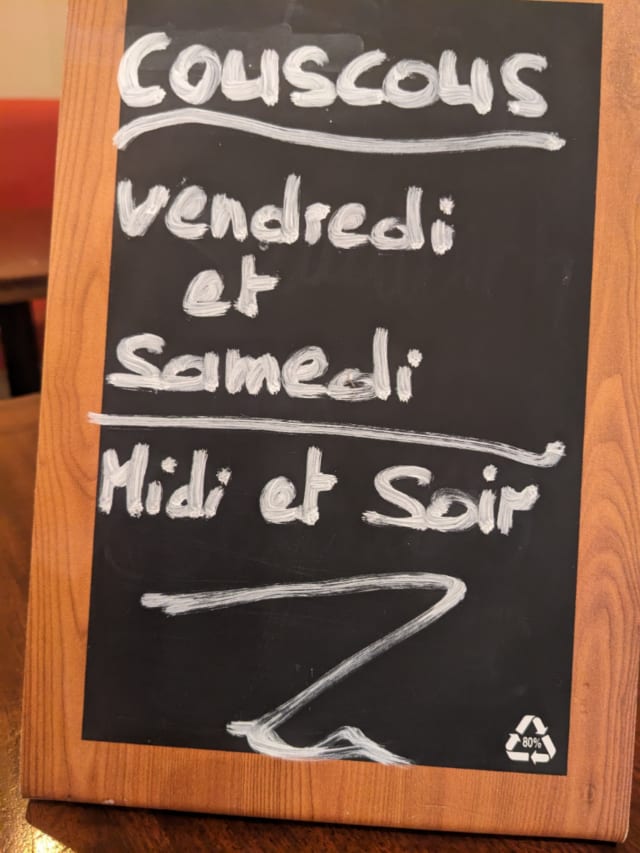 couscous
vendredi
et
samedi
Midi et Soir
80%